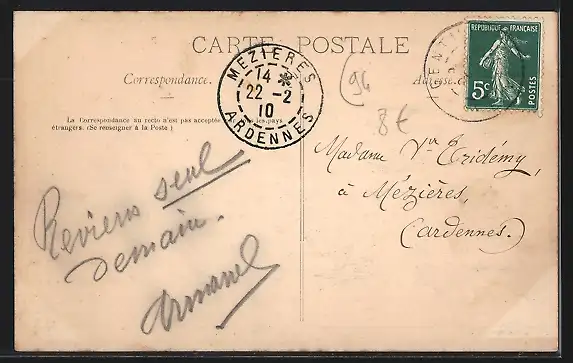 CARTE POSTALE
Correspondance.
La Correspondance au recto n'est pas acceptée
étrangers. (Se renseigner à la Poste)
les pays
MEZIERES
14
22 -2
10
ARDENNES
REPUBLIQUE FRANÇAISE
5c
POSTES
GENTI
94
8€
Madame Vve Eridémy,
à Mézières,
(Ardennes.)
Reviens seul
demain.
Armand